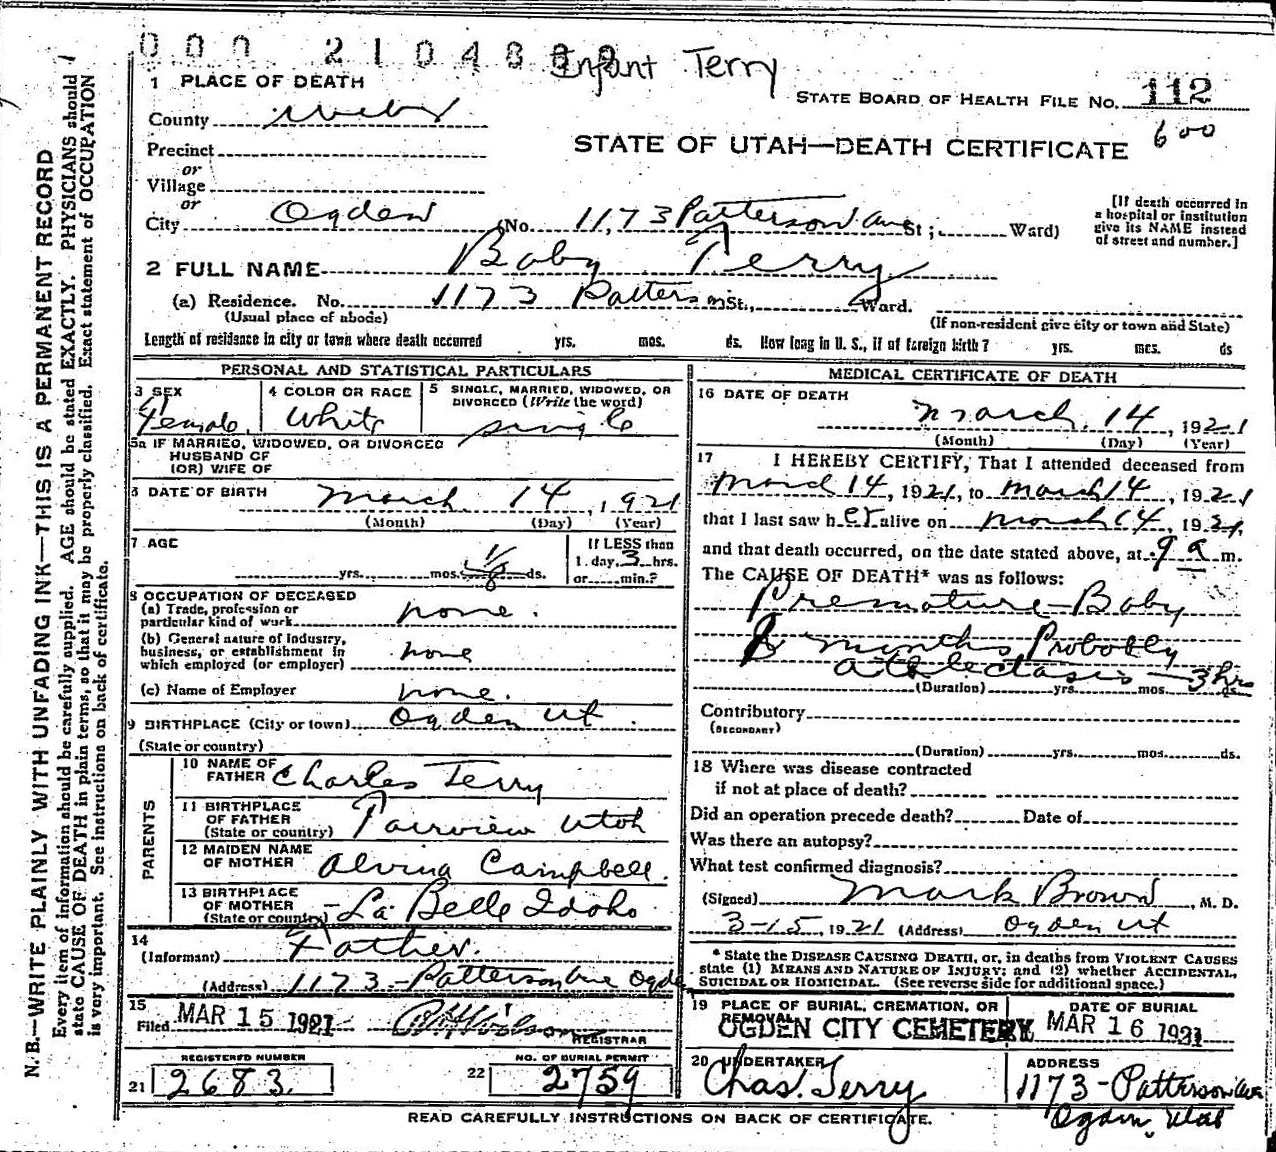 000 2104800
Infant Terry
1 PLACE OF DEATH
STATE BOARD OF HEALTH FILE NO. 112
County Weber
600
STATE OF UTAH—DEATH CERTIFICATE
Precinct
or
Village
or
City Ogden (No. 1173 Patterson Ave St; Ward)
[If death occurred in
a hospital or institution
give its NAME instead
of street and number.]
2 FULL NAME Baby Terry
(a) Residence. No. 1173 Patterson St., Ward.
(Usual place of abode)
(If non-resident give city or town and State)
Length of residence in city or town where death occurred yrs. mos. ds. How long in U. S., if of foreign birth? yrs. mos. ds
PERSONAL AND STATISTICAL PARTICULARS
3 SEX
Female
4 COLOR OR RACE
White
5 SINGLE, MARRIED, WIDOWED, OR
DIVORCED (Write the word)
single
5a IF MARRIED, WIDOWED, OR DIVORCED
HUSBAND OF
(OR) WIFE OF
6 DATE OF BIRTH March 14, 1921
(Month) (Day) (Year)
7 AGE
yrs. mos. 1/8 ds.
If LESS than
1 day, 3 hrs.
or min.?
8 OCCUPATION OF DECEASED
(a) Trade, profession or
particular kind of work none.
(b) General nature of industry,
business, or establishment in
which employed (or employer) none
(c) Name of Employer none.
9 BIRTHPLACE (City or town) Ogden Ut.
(State or country)
PARENTS
10 NAME OF
FATHER Charles Terry
11 BIRTHPLACE
OF FATHER
(State or country) Fairview Utah
12 MAIDEN NAME
OF MOTHER Alvina Campbell.
13 BIRTHPLACE
OF MOTHER
(State or country) La Belle Idaho
14
(Informant) Father.
(Address) 1173 - Patterson Ave Ogde
15
Filed MAR 15 1921
REGISTRAR
REGISTERED NUMBER
21 2683.
NO. OF BURIAL PERMIT
22 2759
MEDICAL CERTIFICATE OF DEATH
16 DATE OF DEATH
March 14, 1921
(Month) (Day) (Year)
17 I HEREBY CERTIFY, That I attended deceased from
March 14, 1921, to March 14, 1921
that I last saw her alive on March 14, 1921,
and that death occurred, on the date stated above, at 9 a m.
The CAUSE OF DEATH* was as follows:
Premature Baby
8 months Probably
atelectasis — 3 hrs
(Duration) yrs. mos. ds.
Contributory
(SECONDARY)
(Duration) yrs. mos. ds.
18 Where was disease contracted
if not at place of death?
Did an operation precede death? Date of
Was there an autopsy?
What test confirmed diagnosis?
(Signed) Mark Brown, M. D.
3-15, 1921 (Address) Ogden Ut
* State the DISEASE CAUSING DEATH, or, in deaths from VIOLENT CAUSES
state (1) MEANS AND NATURE OF INJURY; and (2) whether ACCIDENTAL,
SUICIDAL OR HOMICIDAL. (See reverse side for additional space.)
19 PLACE OF BURIAL, CREMATION, OR
REMOVAL
OGDEN CITY CEMETERY
DATE OF BURIAL
MAR 16 1921
20 UNDERTAKER
Chas. Terry
ADDRESS
1173 - Patterson Ave
Ogden, Utah
READ CAREFULLY INSTRUCTIONS ON BACK OF CERTIFICATE.
N. B.—WRITE PLAINLY WITH UNFADING INK—THIS IS A PERMANENT RECORD
Every item of information should be carefully supplied. AGE should be stated EXACTLY. PHYSICIANS should
state CAUSE OF DEATH in plain terms, so that it may be properly classified. Exact statement of OCCUPATION
is very important. See instructions on back of certificate.